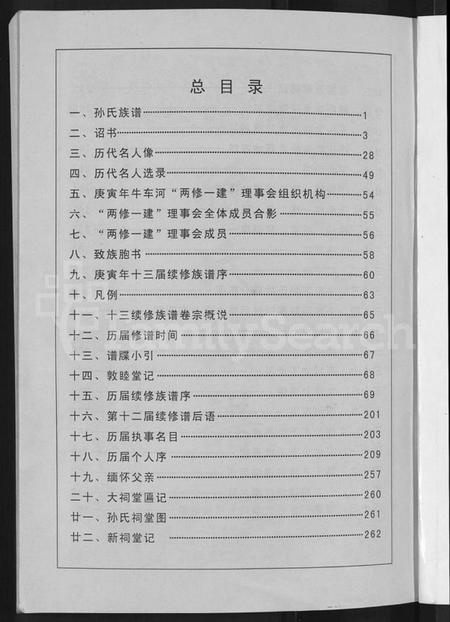 总目录
一、孙氏族谱………1
二、诏书………3
三、历代名人像………28
四、历代名人选录………49
五、庚寅年牛车河“两修一建”理事会组织机构………54
六、“两修一建”理事会全体成员合影………55
七、“两修一建”理事会成员………56
八、致族胞书………58
九、庚寅年十三届续修族谱序………60
十、凡例………63
十一、十三续修族谱卷宗概说………65
十二、历届修谱时间………66
十三、谱牒小引………67
十四、敦睦堂记………68
十五、历届续修族谱序………69
十六、第十二届续修谱后语………201
十七、历届执事名目………203
十八、历届个人序………209
十九、缅怀父亲………257
二十、大祠堂匾记………260
廿一、孙氏祠堂图………261
廿二、新祠堂记………262
FamilySearch